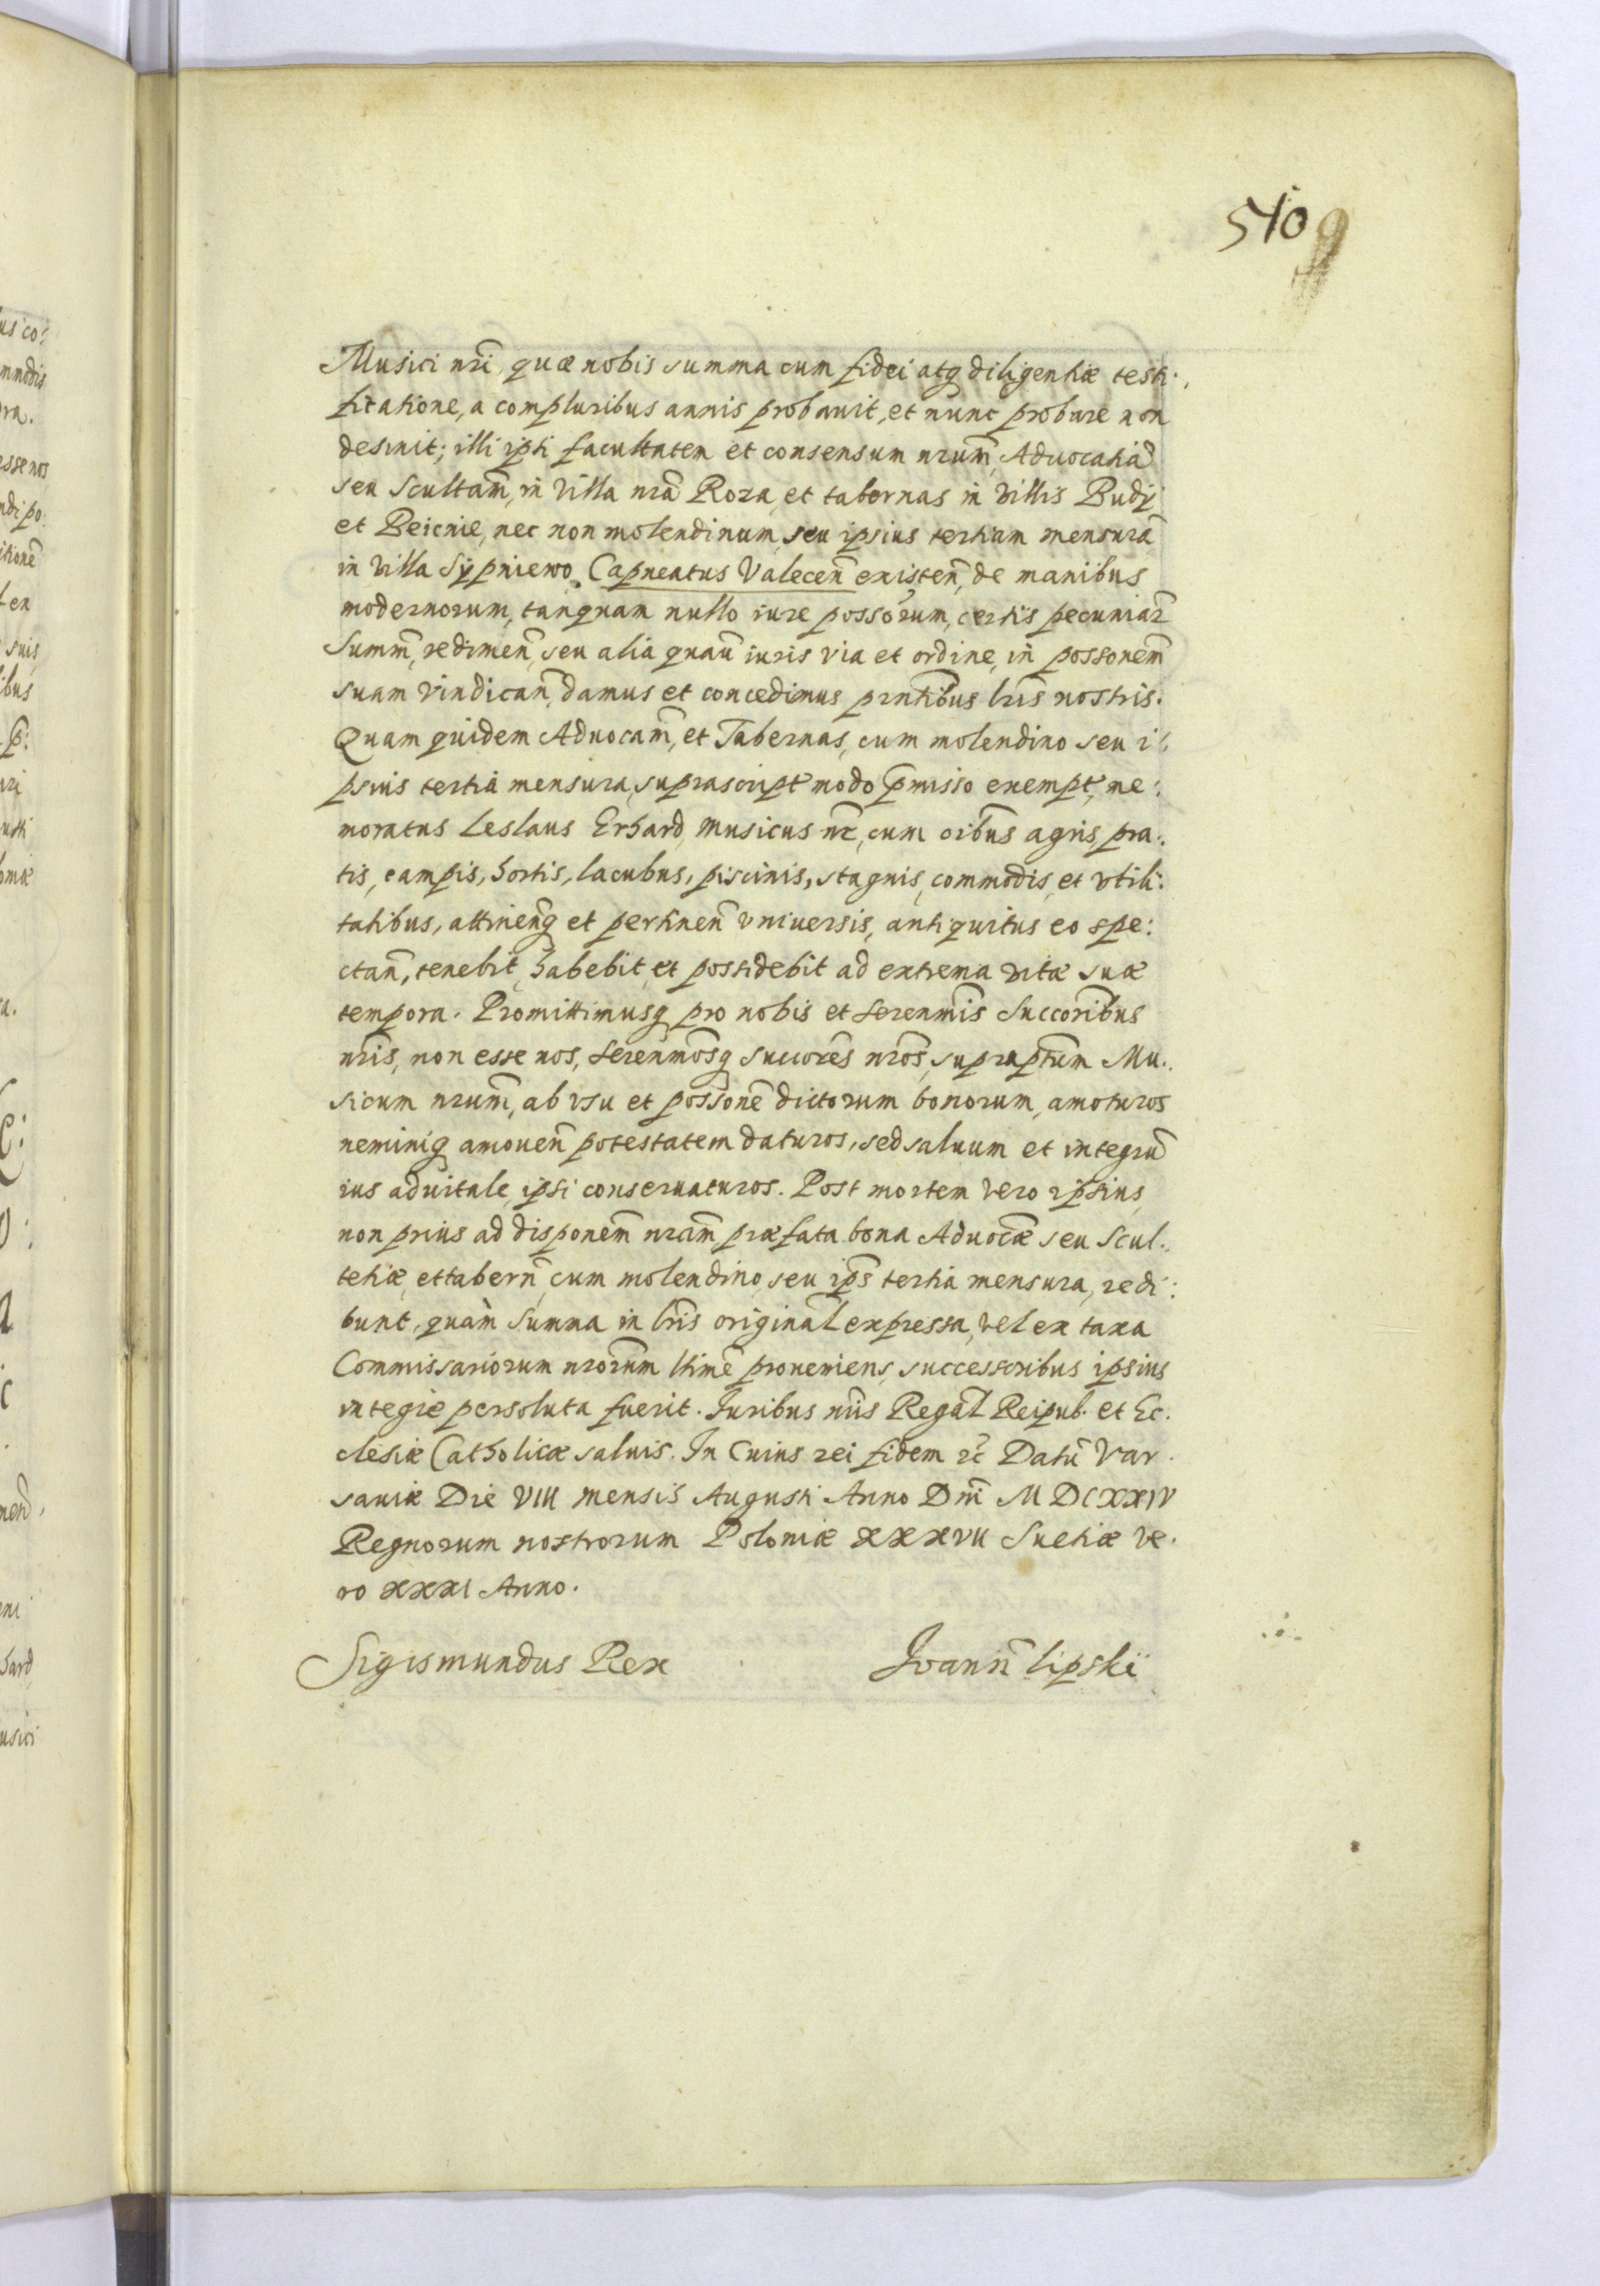 510
Musici nri, quæ nobis summa cum fidei atq diligentiæ testi:
ficatione, a compluribus annis probauit, et nunc probare non
desinit; illi ipsi facultatem et consensum nrum, Aduocatiã
seu Scultam, in Villa nrã Roza, et tabernas in Villis Budÿ
et Peicnie, nec non molendinum, seu ipsius tertiam mensurã
in Villa Sÿpniewo Capneatus Valecen̄ existen̄, de manibus
modernorum, tanquam nullo iure possorum, certis pecuniar
Summ̄, redimen̄, seu alia quau̅ iuris via et ordine, in possonem̄
suam vindican̄, damus et concedimus prntibus lris nostris.
Quam quidem Aduocam̄, et Tabernas, cum molendino seu i:
psius tertia mensura, suprascript modo p̄misso exempt, me:
moratus Leslaus Erhard Musicus nr̄, cum oibus agris, pra:
tis, campis, hortis, lacubus, piscinis, stagnis, commodis, et vtili:
tatibus, attinen̄q et pertinen̄ vniuersis, antiquitus eo spe:
ctan̄, tenebit, habebit, et possidebit ad extrema vitæ suæ
tempora. Promittimusq pro nobis et Serenmis Succoribus
nris, non esse nos, Serenmosq succores nros, supraptum Mu:
sicum nrum, ab vsu et possone dictorum bonorum, amoturos
neminiq amouen̄ potestatem daturos, sed saluum et integrũ
ius aduitale, ipsi conseruaturos. Post mortem vero ipsius,
non prius ad disponem̄ nram præfata bona Aduocæ seu Scul:
tetiæ, et tabern̄, cum molendino, seu ips̄ tertia mensura, redi:
bunt, quàm Summa in lris original expressa, vel ex taxa
Commissariorum nrorum ltime proueniens, successoribus ipsius
integrè persoluta fuerit. Iuribus nris Regal Reipub. et Ec:
clesiæ Catholicæ saluis. In Cuius rei fidem &c̄ Datũ Var:
sauiæ Die VIII Mensis Augusti Anno Dnī MDCXXIV
Regnorum nostrorum Poloniæ XXXVII Suetiæ ve:
ro XXXI Anno.
Sigismundus Rex Joann̄ Lipskï